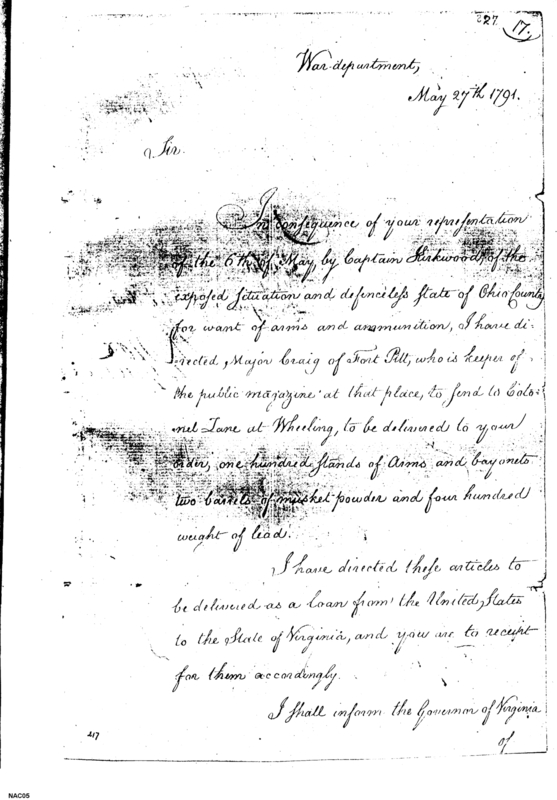 227
17.
War department,
May 27th 1791.
Sir
In consequence of your representation
of the 6th of May, by Captain Kirkwood, of the
exposed situation and defenceless state of Ohio County
for want of arms and ammunition, I have di-
rected Major Craig of Fort Pitt, who is keeper of
the public magazine at that place, to send to Colo-
nel Zane at Wheeling, to be delivered to your
order, one hundred stands of Arms and bayonets
two barrels of musket powder and four hundred
weight of lead.
I have directed these articles to
be delivered as a loan from the United States
to the State of Virginia, and you are to receipt
for them accordingly.
I shall inform the Governor of Virginia
of
217
NAC05